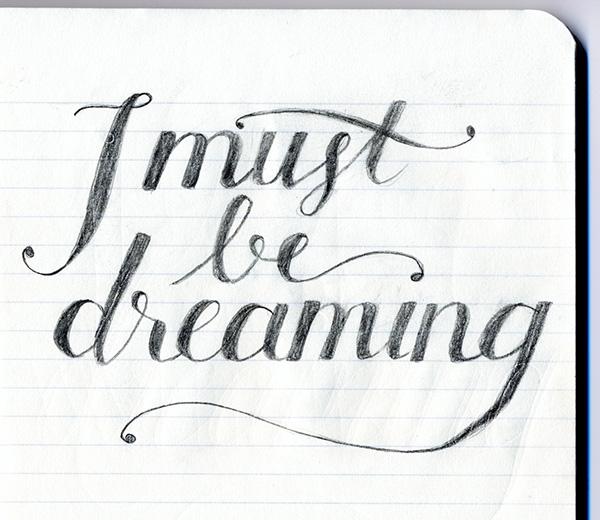 I must
be
dreaming